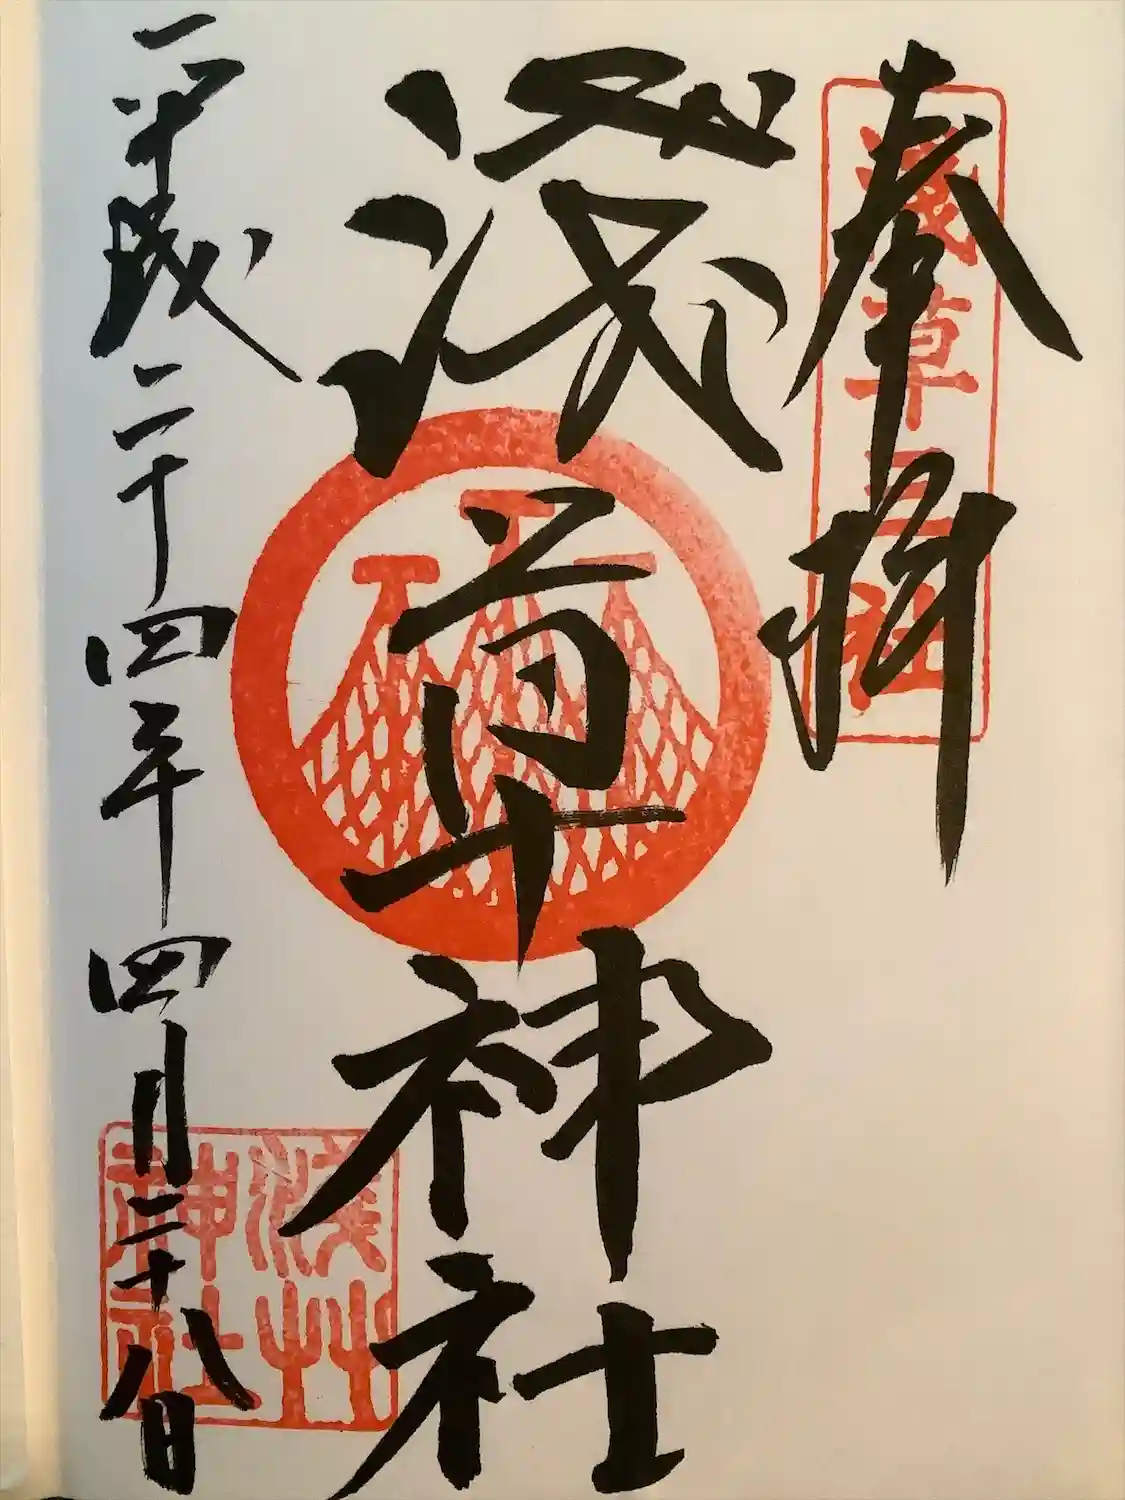 奉拝
淺草三社
淺草神社
平成二十四年四月二十八日
淺艸
神社